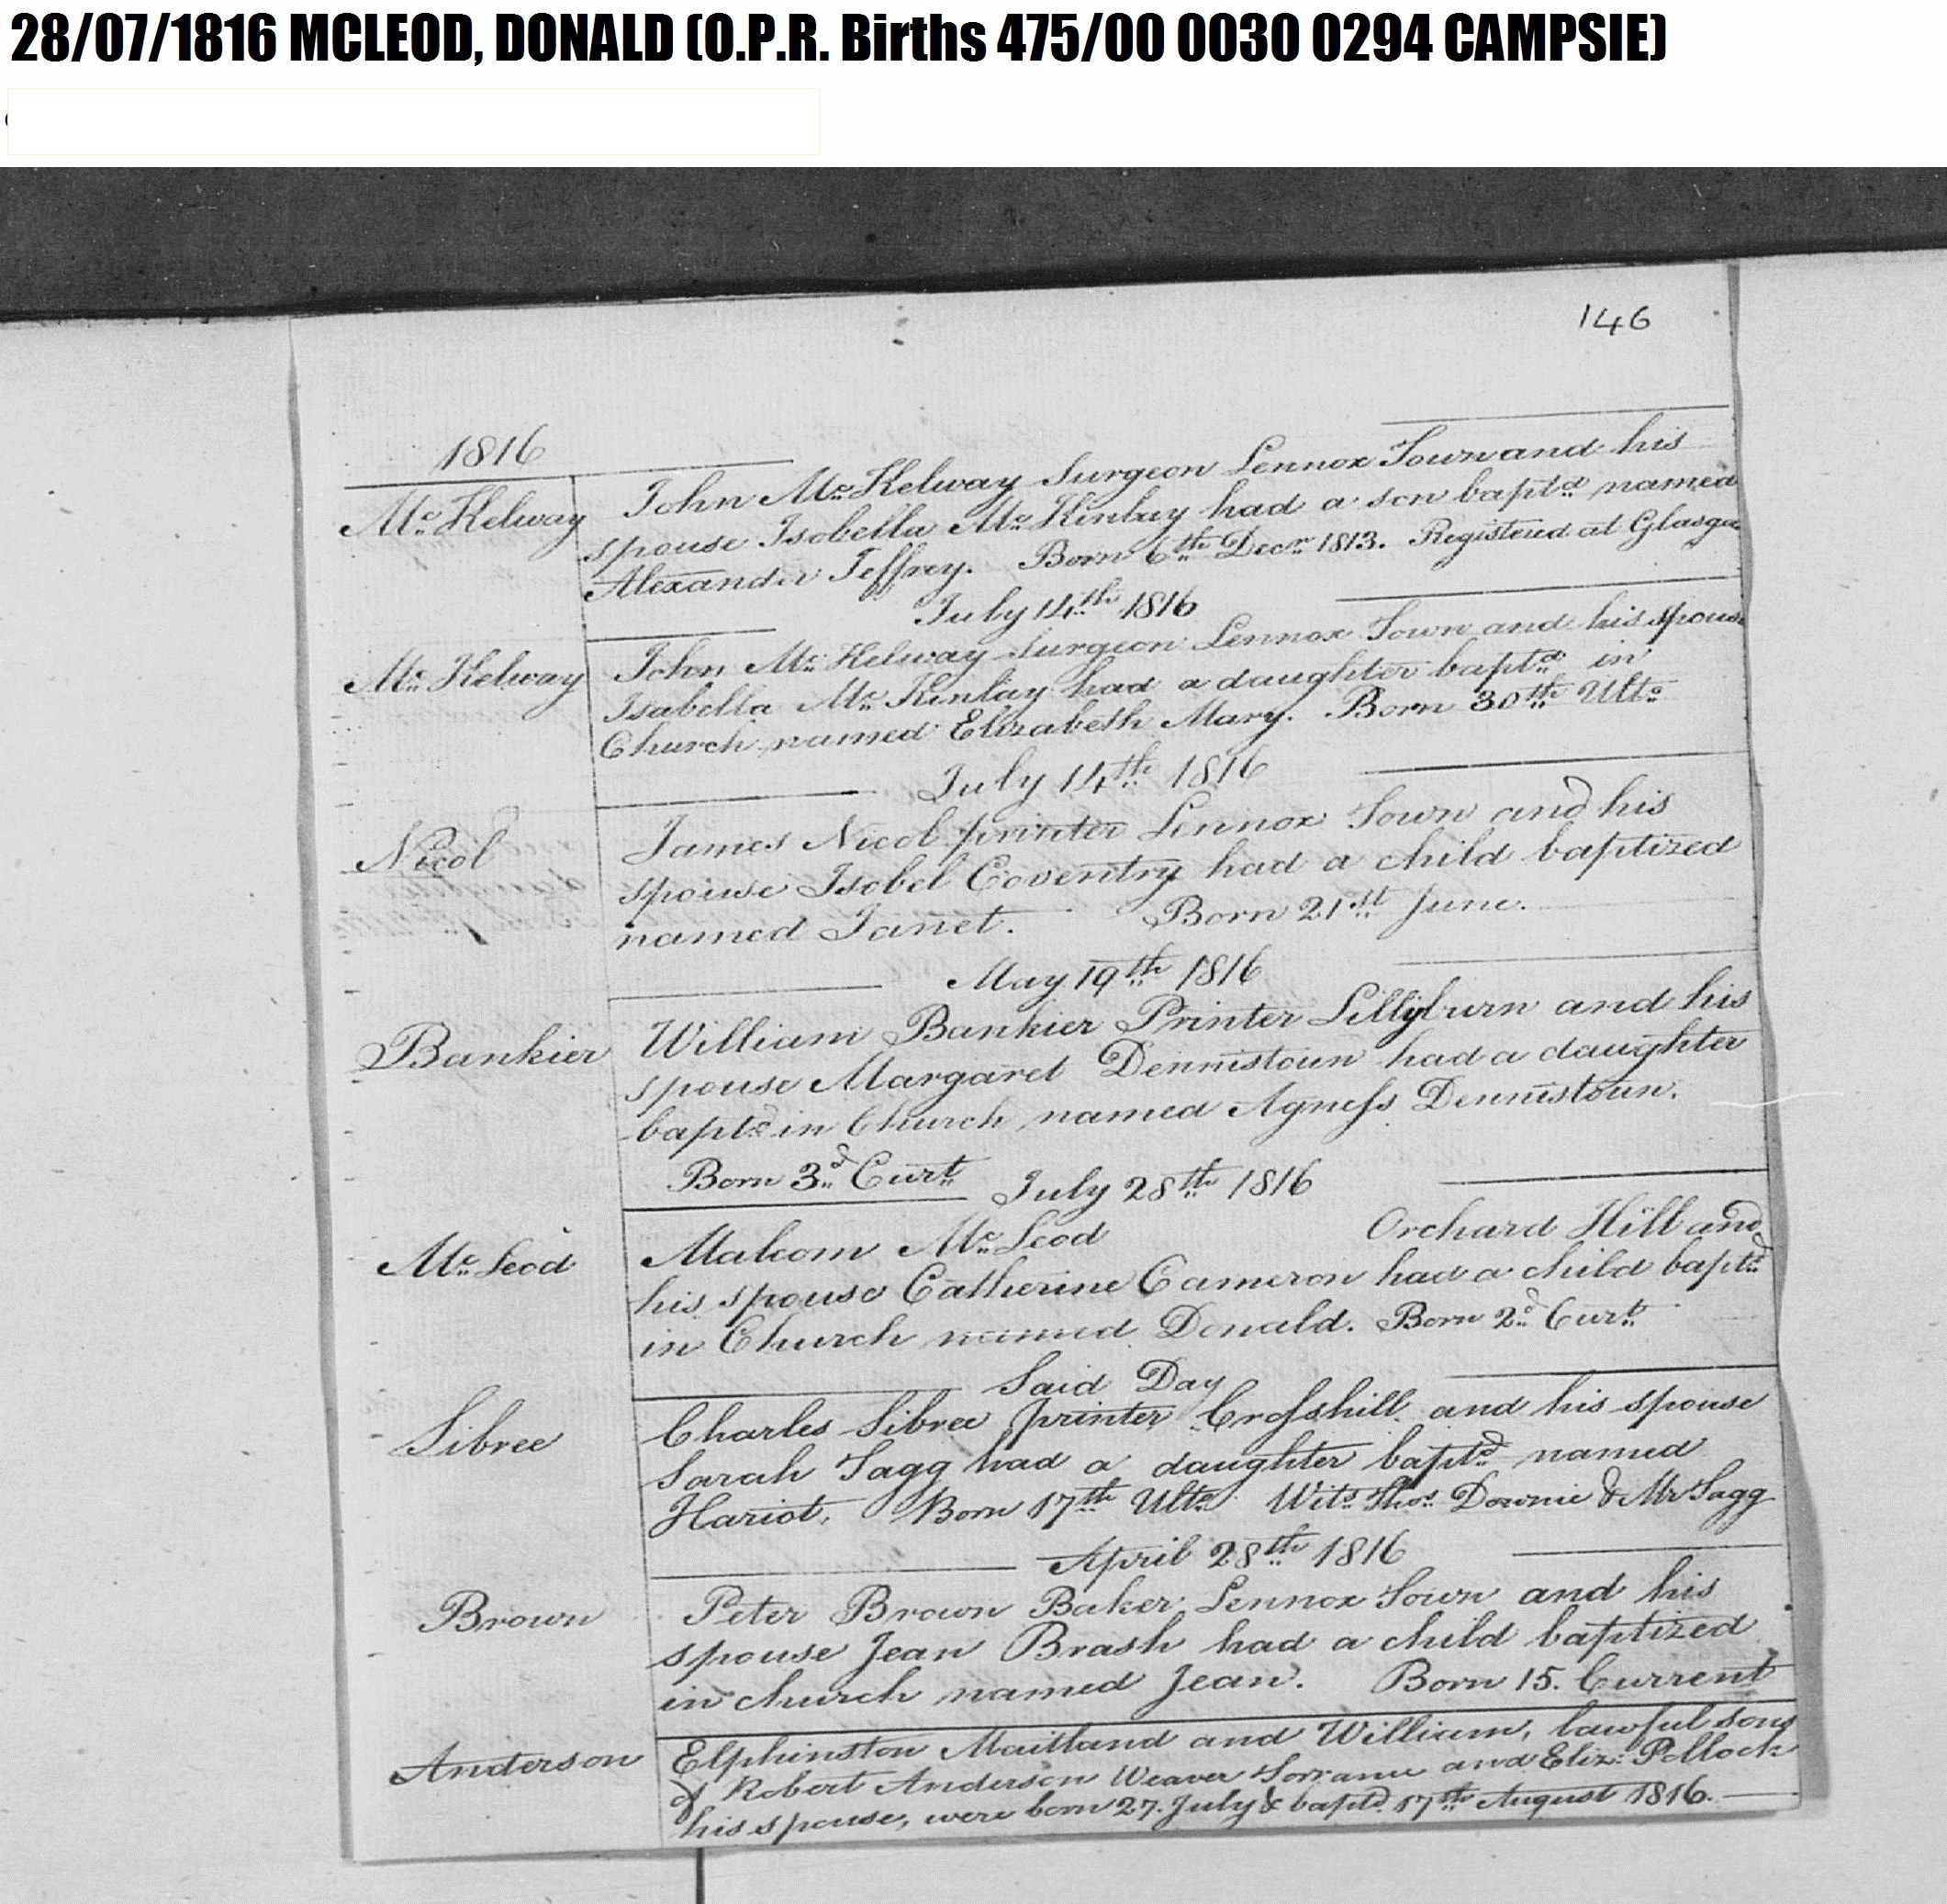 28/07/1816 MCLEOD, DONALD (O.P.R. Births 475/00 0030 0294 CAMPSIE)
146
1816
McKelway
John McKelway Surgeon Lennox Town and his
spouse Isobella McKinlay had a son baptd named
Alexander Jeffrey. Born 6th Decr 1813. Registered at Glasgow
July 14th 1816
McKelway
John McKelway Surgeon Lennox Town and his spouse
Isabella McKinlay had a daughter baptd in
Church named Elizabeth Mary. Born 30th Ulto
July 14th 1816
Nicol
James Nicol printer Lennox Town and his
spouse Isobel Coventry had a child baptized
named Janet. Born 21st June.
May 19th 1816
Bankier
William Bankier Printer Lillyburn and his
spouse Margaret Dennistoun had a daughter
baptd in Church named Agness Dennistoun.
Born 3d Curt
July 28th 1816
McLeod
Malcom McLeod Orchard Hill and
his spouse Catherine Cameron had a child baptd
in Church named Donald. Born 2d Curt
Said Day
Sibree
Charles Sibree printer Crosshill and his spouse
Sarah Tagg had a daughter baptd named
Hariot. Born 17th Ulto Wits Thos Downie & Mr Tagg
April 28th 1816
Brown
Peter Brown Baker Lennox Town and his
spouse Jean Brash had a child baptized
in church named Jean. Born 15. Current
Anderson
Elphinston Maitland and William, lawful sons
of Robert Anderson Weaver Torrance and Eliz: Pollock
his spouse, were born 27. July & baptd. 17th August 1816.